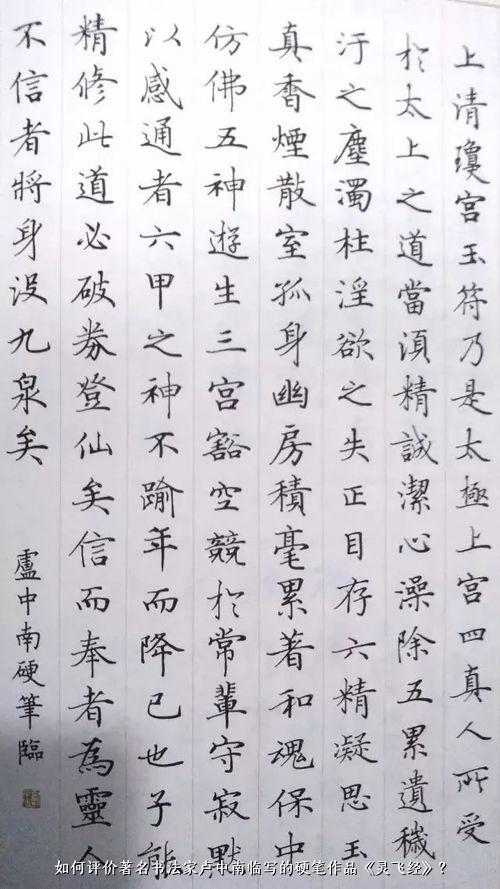 上清瓊宮玉符乃是太極上宮四真人所受
於太上之道當須精誠潔心澡除五累遺穢
汙之塵濁柱淫欲之失正目存六精凝思玉
真香煙散室孤身幽房積毫累著和魂保中
仿佛五神遊生三宮豁空競於常輩守寂默
以感通者六甲之神不踰年而降已也子能
精修此道必破券登仙矣信而奉者為靈人
不信者將身没九泉矣
盧中南硬筆臨
如何评价著名书法家卢中南临写的硬笔作品《灵飞经》？